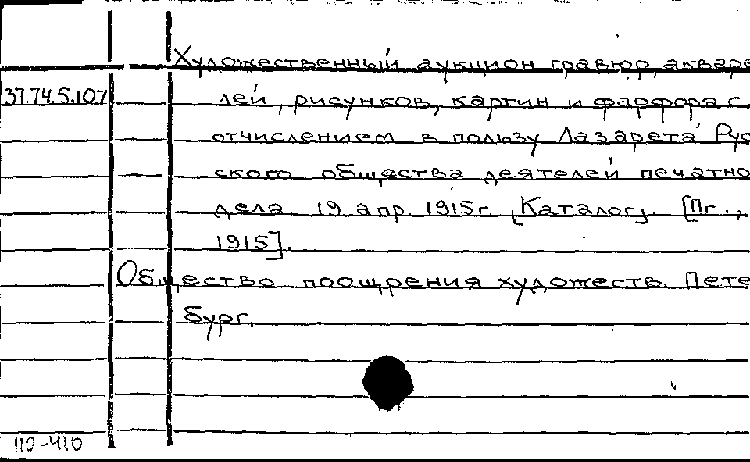 Художественный аукцион гравюр, акваре
37.74.5.107 лей, рисунков, картин и фарфора с
отчислением в пользу Лазарета Рус
ского общества деятелей печатно
дела 19 апр. 1915 г. [Каталог]. [Пг.,
1915].
Общество поощрения художеств. Пете
бург.
110-410